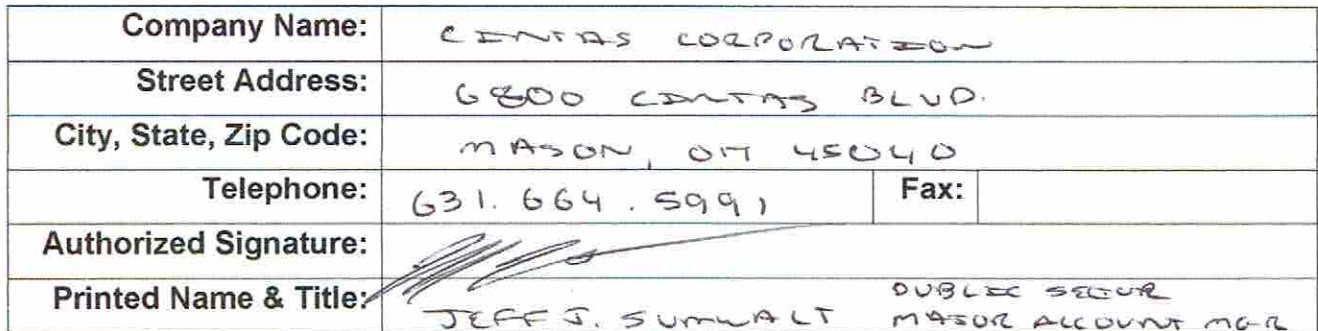 Company Name: CINTAS CORPORATION
Street Address: 6800 CINTAS BLVD.
City, State, Zip Code: MASON, OH 45040
Telephone: 631.664.5991 Fax:
Authorized Signature:
Printed Name & Title: JEFF J. SUMWALT PUBLIC SECTOR
MAJOR ACCOUNT MGR